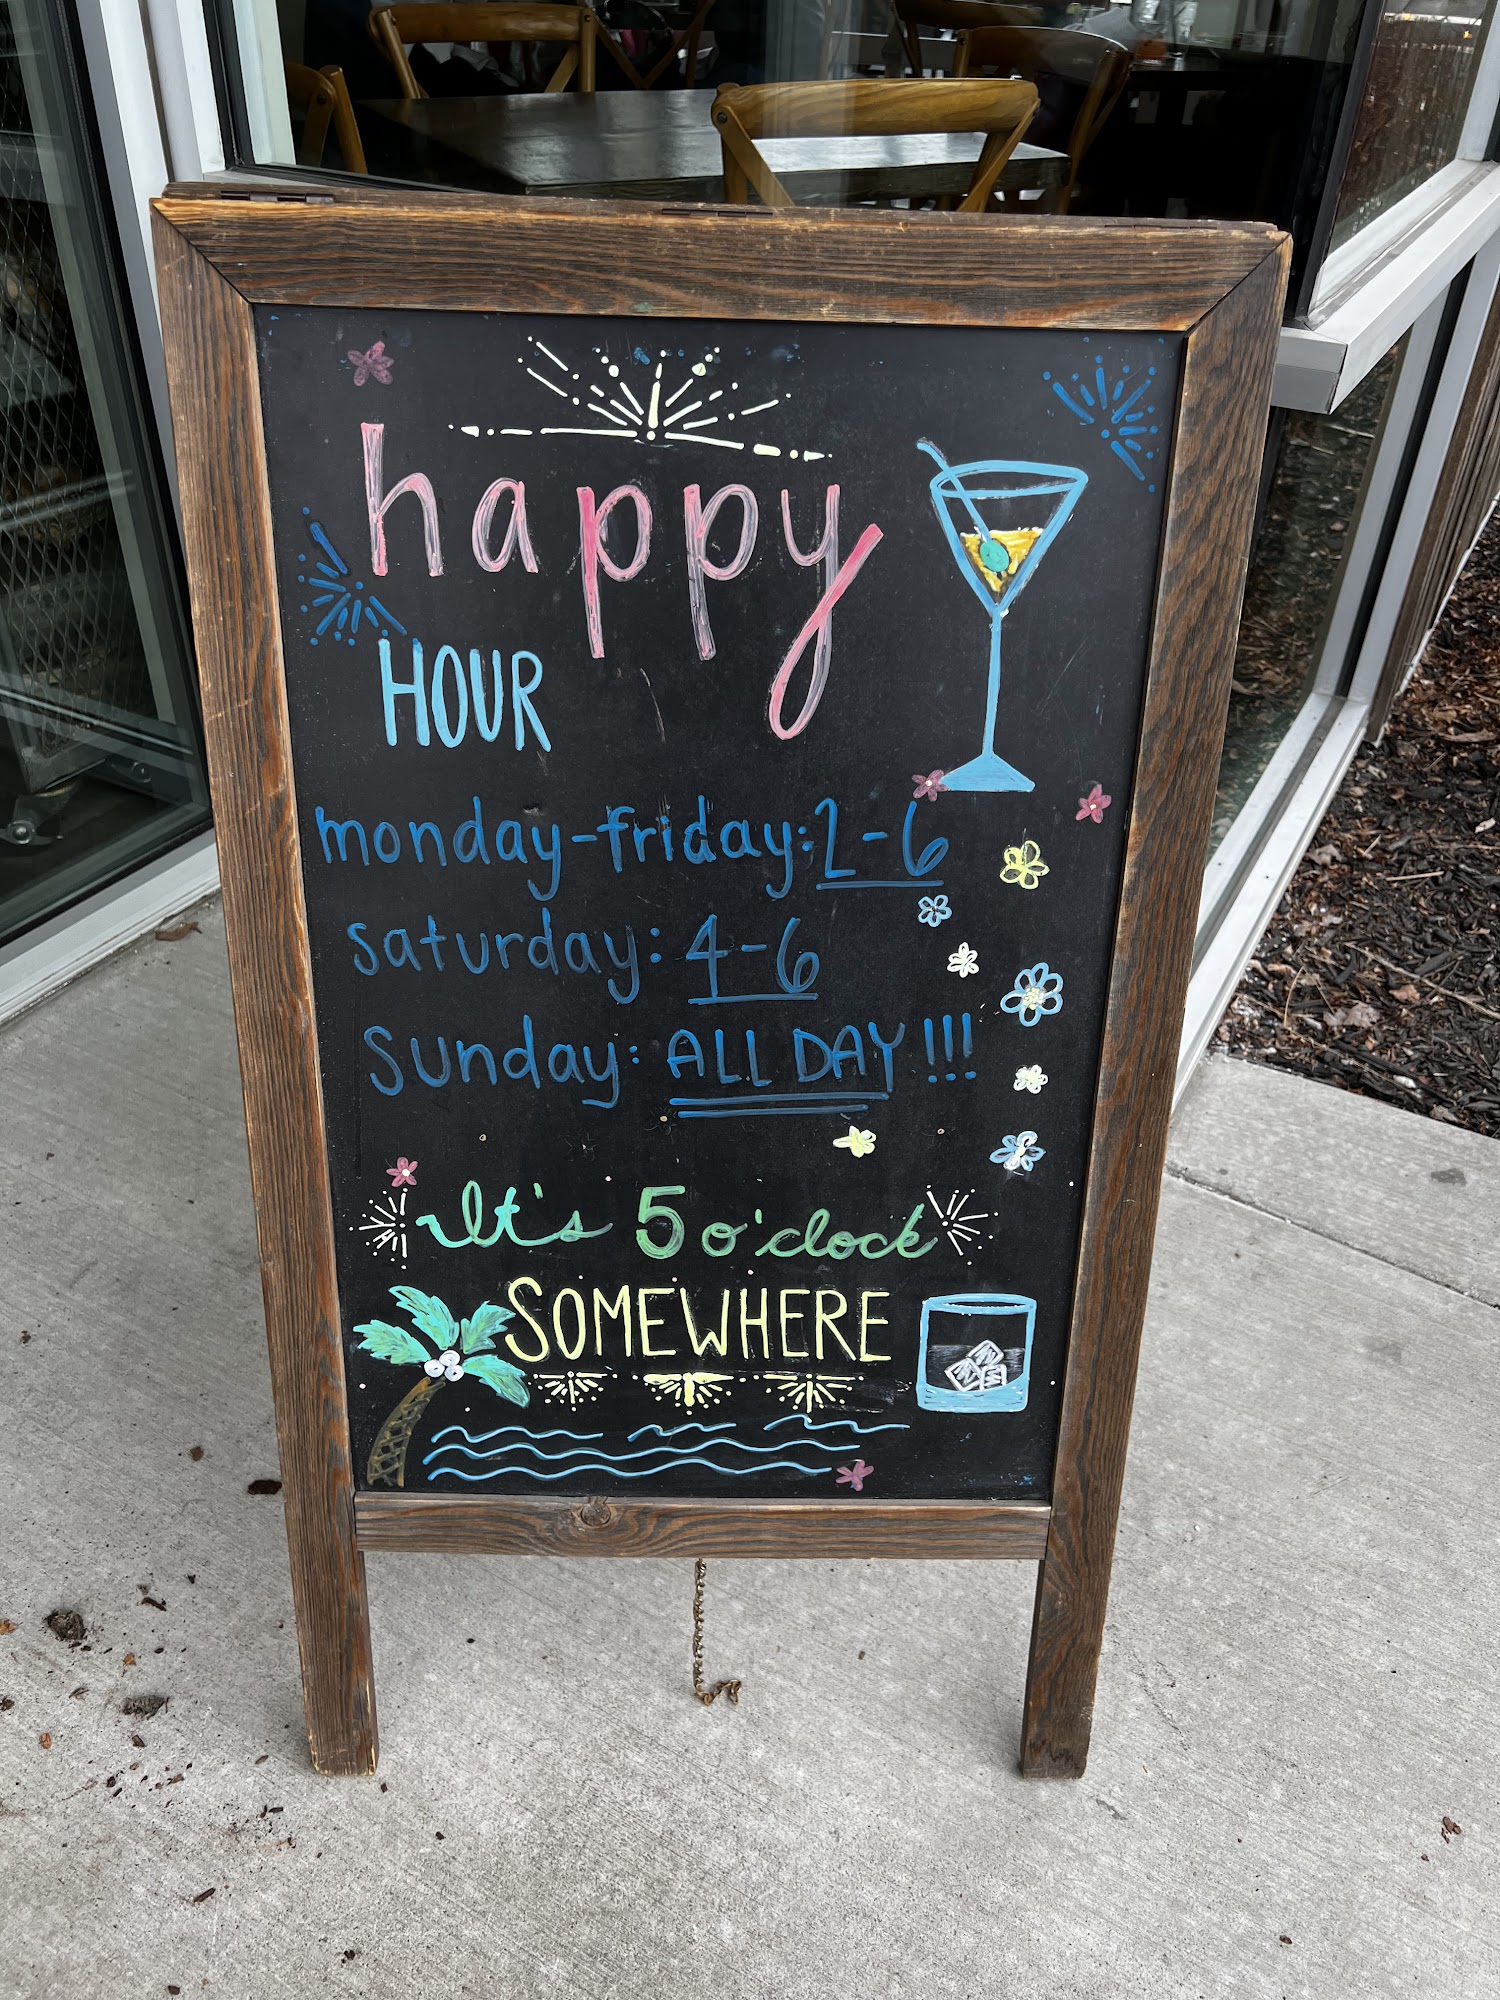 happy
HOUR
monday-friday: 2-6
saturday: 4-6
Sunday: ALL DAY!!!
It's 5 o'clock
SOMEWHERE